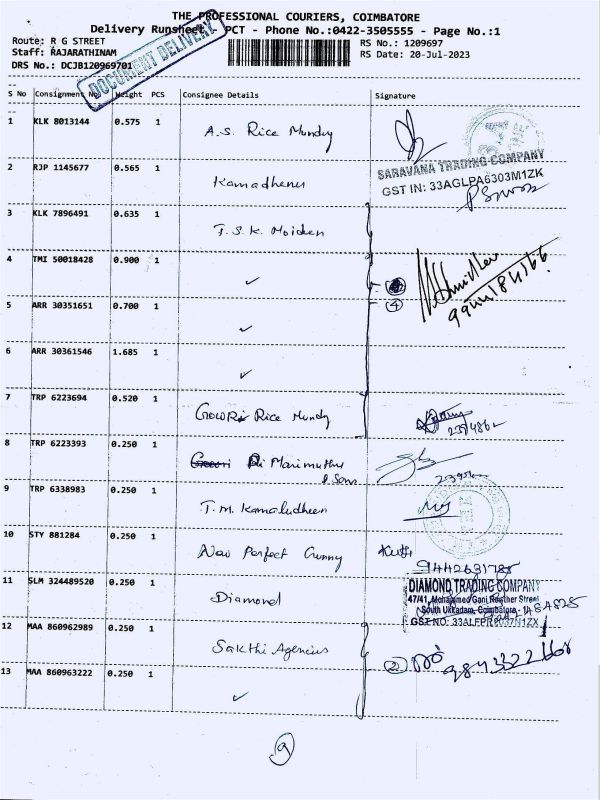 THE PROFESSIONAL COURIERS, COIMBATORE
Delivery Runsheet - PCT - Phone No.:0422-3505555 - Page No.:1
Route: R G STREET RS No.: 1209697
Staff: RAJARATHINAM RS Date: 20-Jul-2023
DRS No.: DCJB120969701
DOCUMENT DELIVERY
S No Consignment No Weight PCS Consignee Details Signature
1 KLK 8013144 0.575 1 A.S. Rice Mundy
SARAVANA TRADING COMPANY
GST IN: 33AGLPA6303M1ZK
2 RJP 1145677 0.565 1 Kamadhenu
3 KLK 7896491 0.635 1 T.S.K. Moideen
4 TMI 50018428 0.900 1 ✓
④
5 ARR 30351651 0.700 1 ✓
6 ARR 30361546 1.685 1 ✓
7 TRP 6223694 0.520 1 Gowri Rice Mundy
8 TRP 6223393 0.250 1 Marimuthu
& Sons
9 TRP 6338983 0.250 1 T.M. Kamaludheen
10 STY 881284 0.250 1 New Perfect Gunny
11 SLM 324489520 0.250 1 Diamond
DIAMOND TRADING COMPANY
47/41, Mohammed Gani Rowther Street
South Ukkadam, Coimbatore - 1
12 MAA 860962989 0.250 1 Sakthi Agencies
②
13 MAA 860963222 0.250 1 ✓
⑨